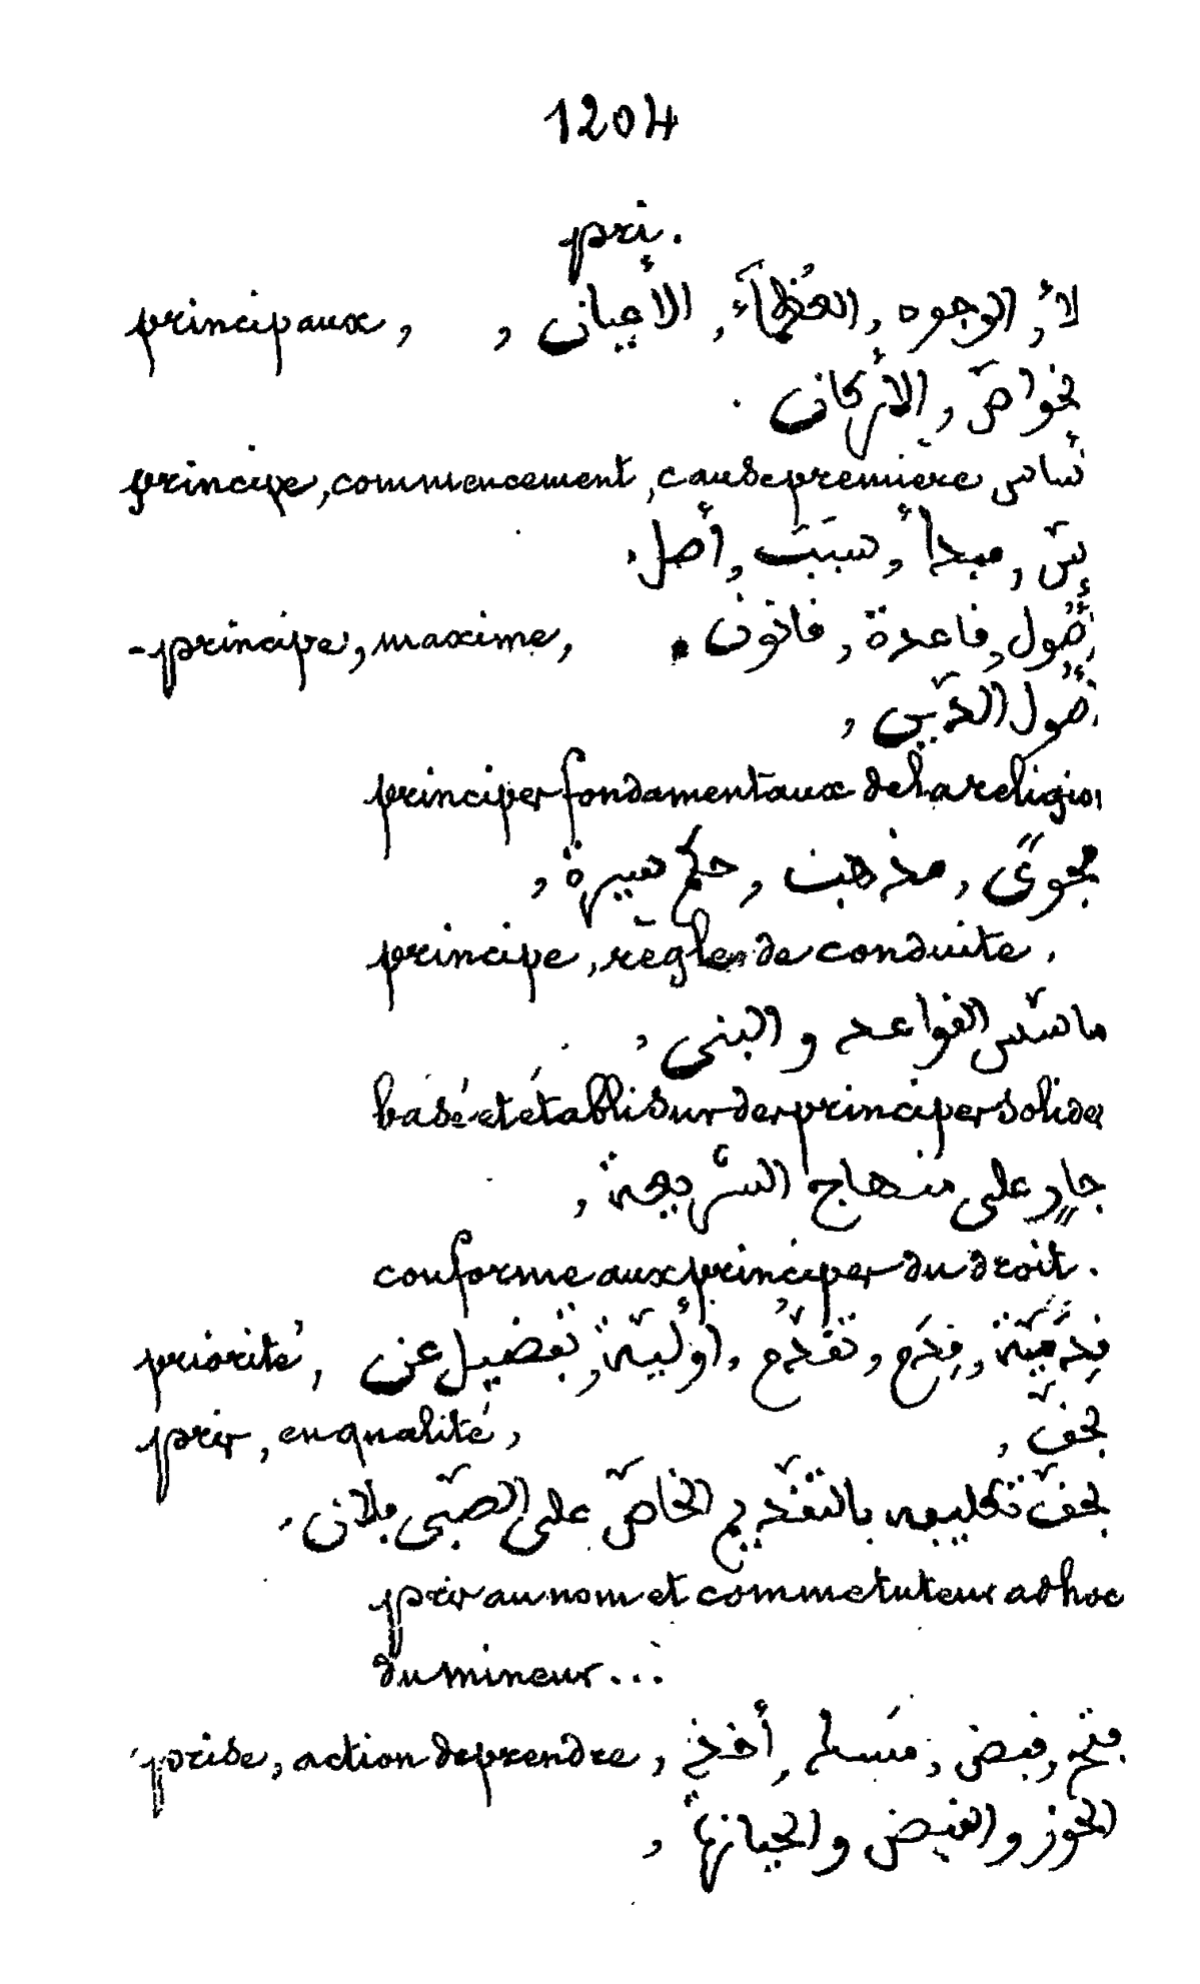 1204
pri.
principaux, الأعيان, العُظمآء, الوجوه, لأ
لخواصّ, الأركان.
principe, commencement, cause première ساس
سبَب, أصل, مبدأ, إسّ
-principe, maxime, صُول, قاعدة, قانون.
صُول الدّين,
principes fondamentaux de la religion
مذهب, حكم سيرة,
principe, règles de conduite.
القواعد و البنى,
basé et établi sur des principes solides
جارٍ على منهاج الشّريعة,
conforme aux principes du droit.
priorité, قِدَميّة, قِدَم, تقدّم, أوليّة, تفضيل عن
pris, en qualité, بحقّ,
بحقّ تكليفه بالتقديم الخاصّ على الصّبى فلان.
pris au nom et comme tuteur ad hoc
du mineur...
prise, action de prendre, أخذ, قبض, فتح
الحوز و القبض و